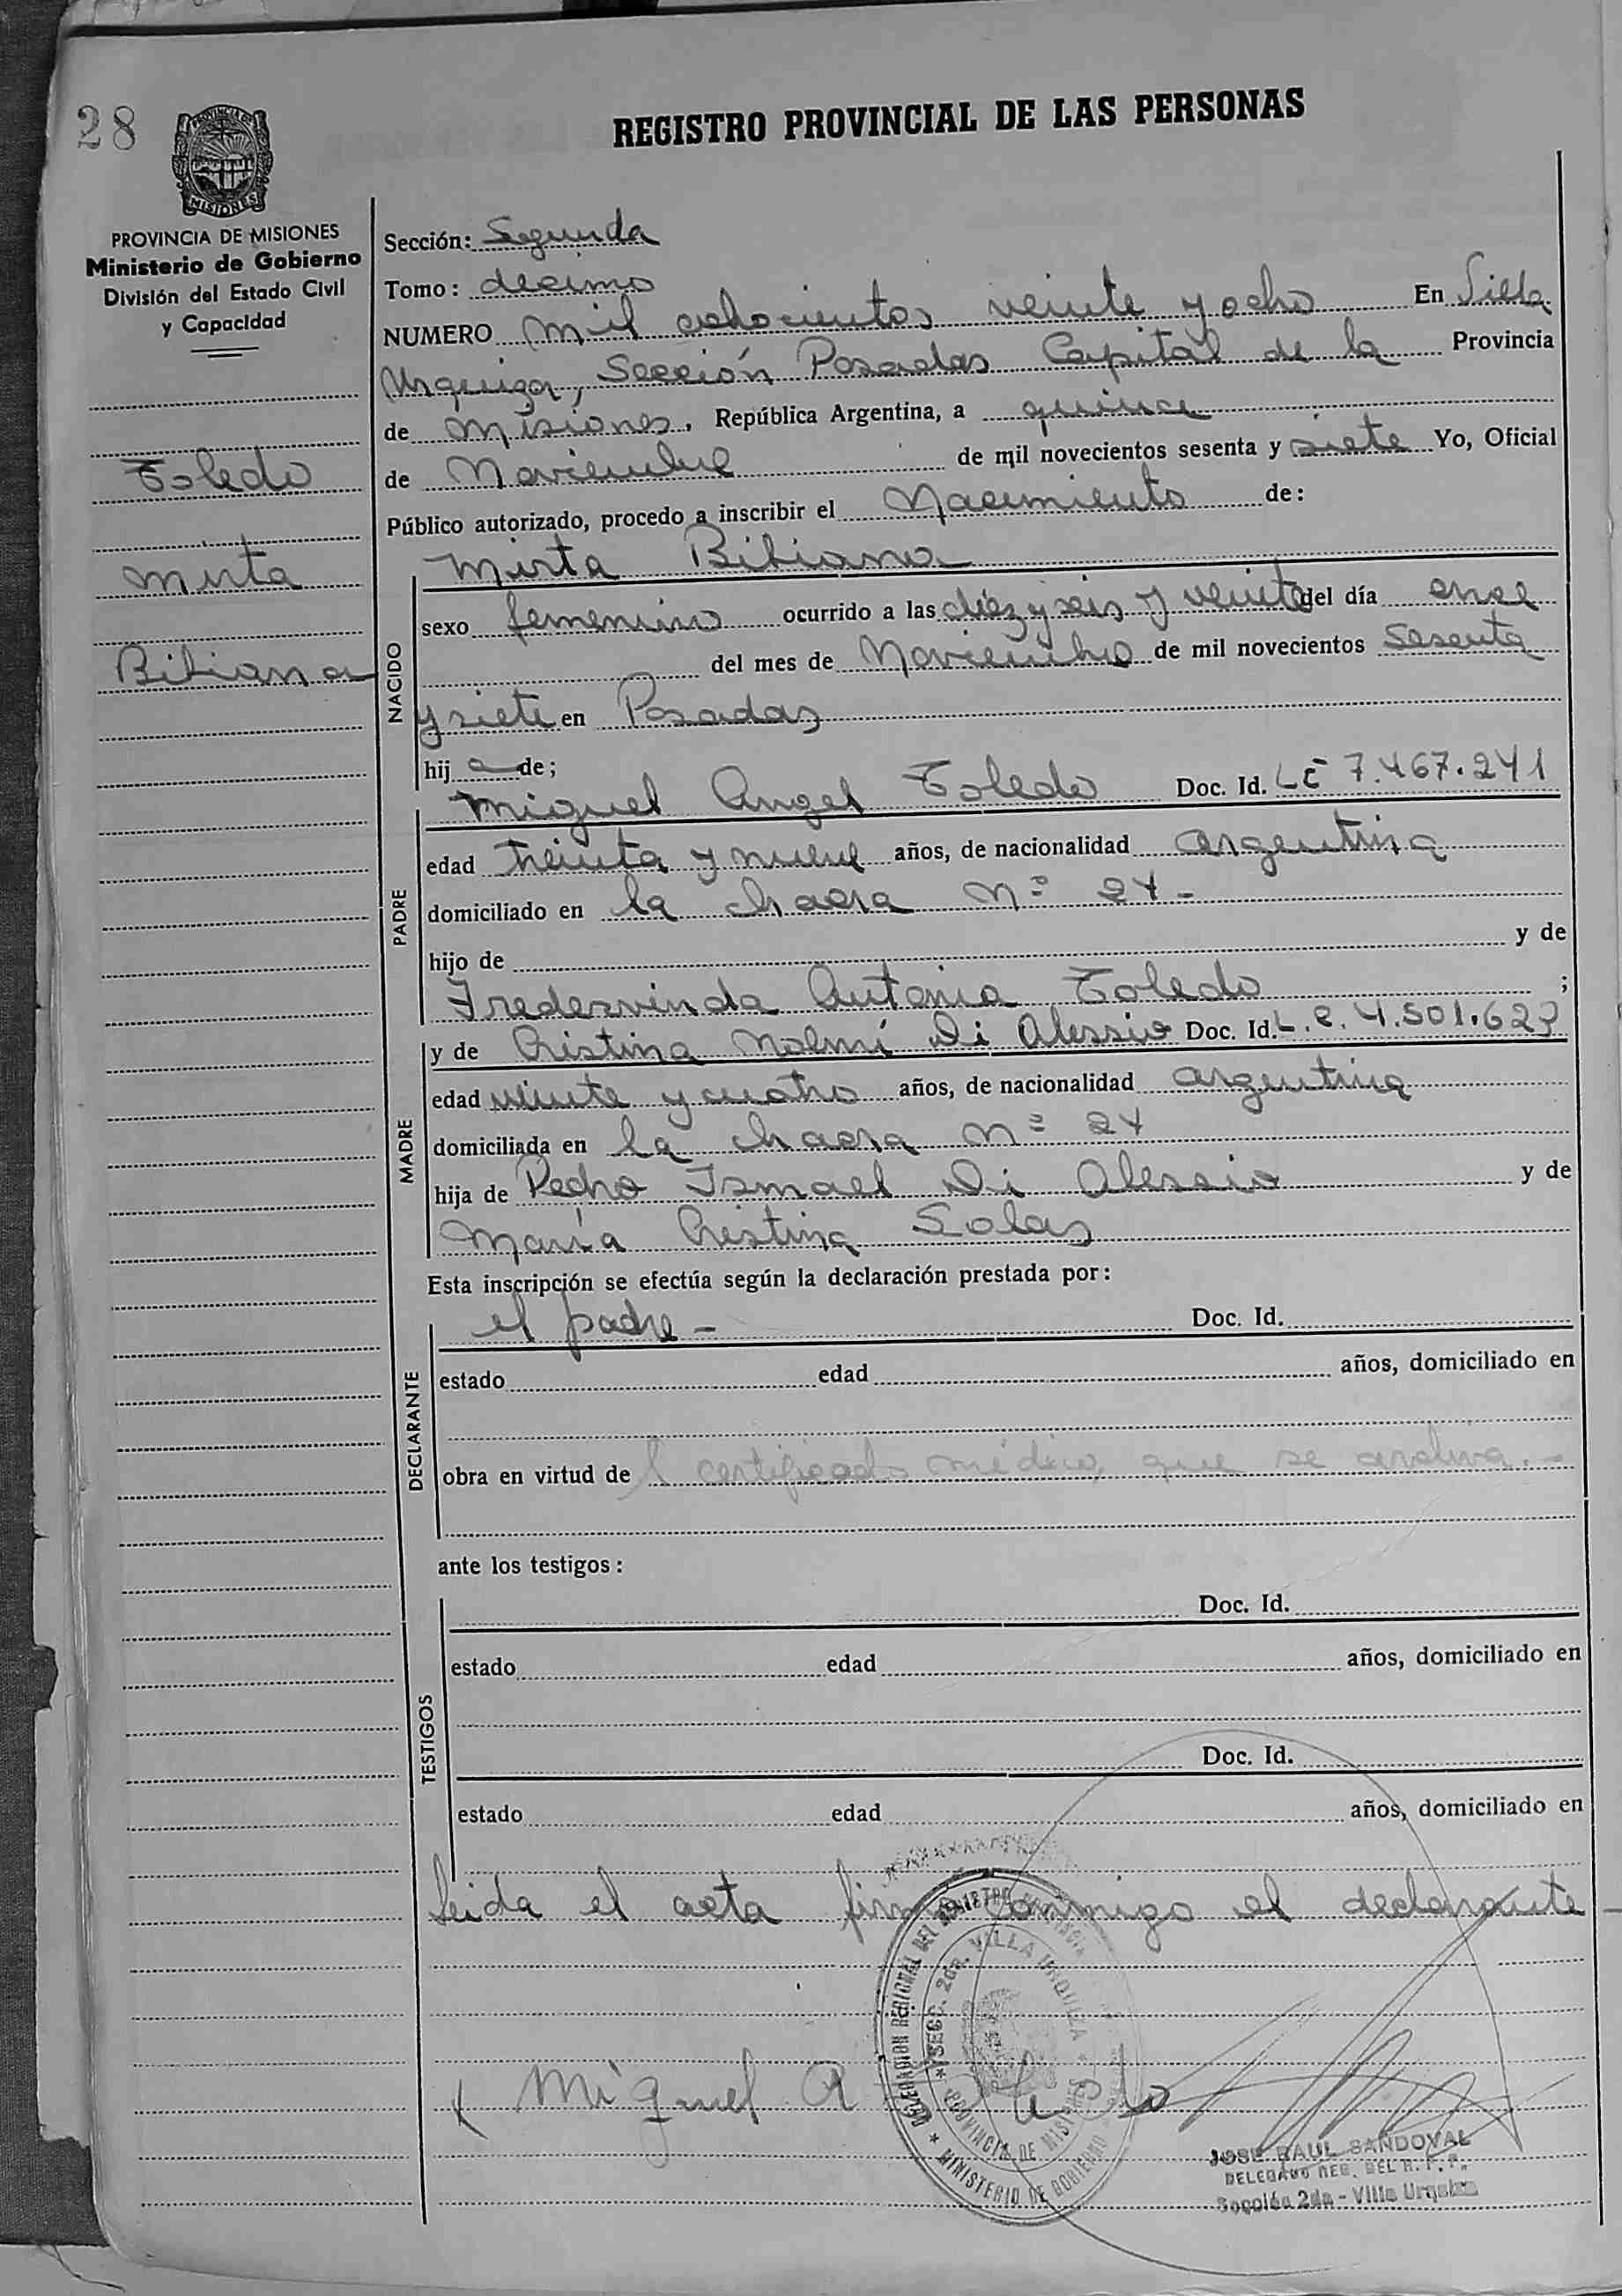 28
REGISTRO PROVINCIAL DE LAS PERSONAS
PROVINCIA DE MISIONES
MISIONES
Ministerio de Gobierno
División del Estado Civil
y Capacidad
Toledo
Mirta
Bibiana
Sección: Segunda
Tomo: decimo
NUMERO mil ochocientos veinte y ocho En Villa
Urquiza, Sección Posadas Capital de la Provincia
de Misiones, República Argentina, a quince
de Noviembre de mil novecientos sesenta y siete Yo, Oficial
Público autorizado, procedo a inscribir el Nacimiento de:
NACIDO
Mirta Bibiana
sexo femenino ocurrido a las diez y seis y veinte del día once
del mes de Noviembre de mil novecientos sesenta
y siete en Posadas
hij a de;
PADRE
Miguel Angel Toledo Doc. Id. LE 7.467.241
edad treinta y nueve años, de nacionalidad argentina
domiciliado en la chacra Nº 24-
hijo de y de
Fredesvinda Antonia Toledo ;
MADRE
y de Cristina Noemí Di Alessio Doc. Id. L.C. 4.501.623
edad veinte y cuatro años, de nacionalidad argentina
domiciliada en la chacra Nº 24
hija de Pedro Ismael Di Alessio y de
María Cristina Solas
Esta inscripción se efectúa según la declaración prestada por:
DECLARANTE
el padre - Doc. Id.
estado edad años, domiciliado en
obra en virtud de l certificado médico, que se archiva.-
ante los testigos:
TESTIGOS
Doc. Id.
estado edad años, domiciliado en
Doc. Id.
estado edad años, domiciliado en
Leida el acta firma conmigo el declarante
DELEGACION REGIONAL DEL REGISTRO
SECC. 2da. VILLA URQUIZA
PROVINCIA DE MISIONES
MINISTERIO DE GOBIERNO
Miguel A Toledo
JOSE RAUL SANDOVAL
DELEGADO REG. DEL R. P. P.
Sección 2da - Villa Urquiza